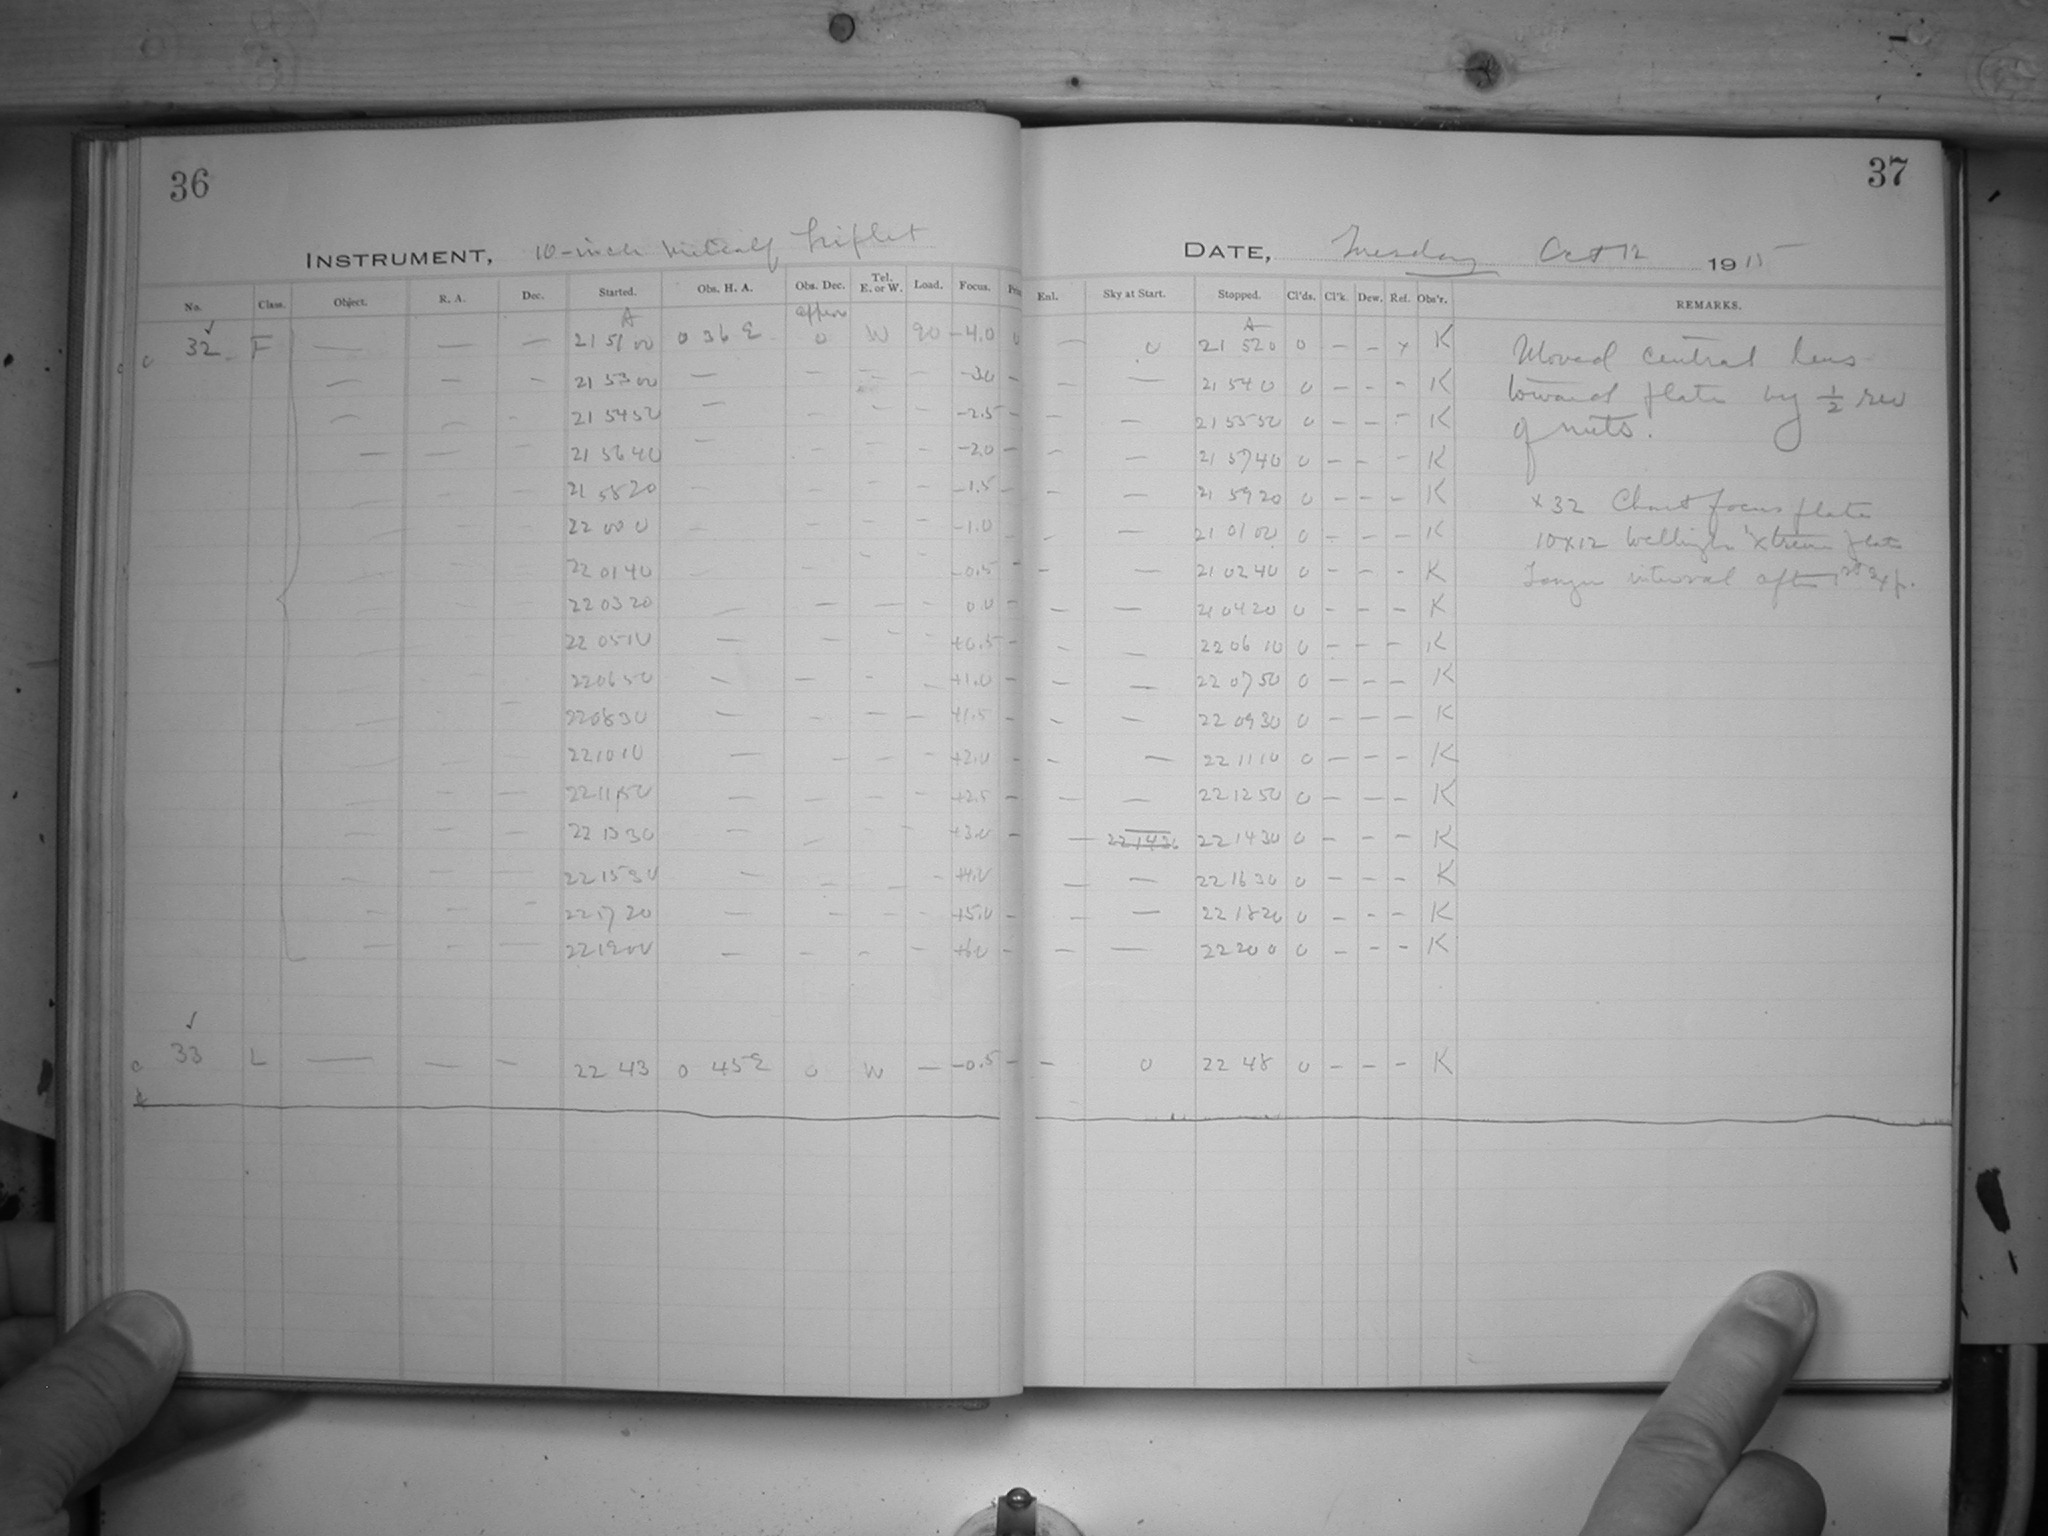 36
INSTRUMENT, 10-inch Metcalf Triplet
No. Class. Object. R. A. Dec. Started. Obs. H. A. Obs. Dec. Tel. E. or W. Load. Focus.
A approx
32 F — — — 21 51 00 0 36 E 0 W 90 -4.0 0
— — — 21 53 00 — — — — -3.0 —
— — — 21 54 50 — — — — -2.5 —
— — 21 56 40 — — — — -2.0 —
— — — 21 58 20 — — — — -1.5 —
— — — 22 00 0 — — — — -1.0
— — — 22 01 40 — — — -0.5 —
— — — 22 03 20 — — — — 0.0 —
— — — 22 05 10 — — — — +0.5 —
— — — 22 06 50 — — — — +1.0 —
— — — 22 08 30 — — — — +1.5 —
— — — 22 10 10 — — — — +2.0 —
— — — 22 11 50 — — — — +2.5 —
— — — 22 13 30 — — — — +3.0 —
— — — 22 15 30 — — — — +4.0
— — — 22 17 20 — — — — +5.0 —
— — — 22 19 00 — — — — +6.0 —
33 L — — — 22 43 0 45 E 0 W — -0.5 —
37
DATE, Tuesday Oct 12 1915
Enl. Sky at Start. Stopped. Cl'ds. Cl'k. Dew. Ref. Obs'r. REMARKS.
A
— 0 21 52 0 0 — — x K
— — 21 54 0 0 — — — K
— — 21 55 50 0 — — — K
— — 21 57 40 0 — — — K
— — 21 59 20 0 — — — K
— — 21 01 00 0 — — — K
— — 21 02 40 0 — — — K
— — 21 04 20 0 — — — K
— — 22 06 10 0 — — — K
— — 22 07 50 0 — — — K
— — 22 09 30 0 — — — K
— — 22 11 10 0 — — — K
— — 22 12 50 0 — — — K
— 22 14 30 22 14 30 0 — — — K
— — 22 16 30 0 — — — K
— — 22 18 20 0 — — — K
— — 22 20 0 0 — — — K
— 0 22 48 0 — — — K
Moved central lens
toward plate by 1/2 rev
of nuts.
x 32 Chart focus plate
10x12 Wellington Xtreme plate
Longer interval after 1st Exp.